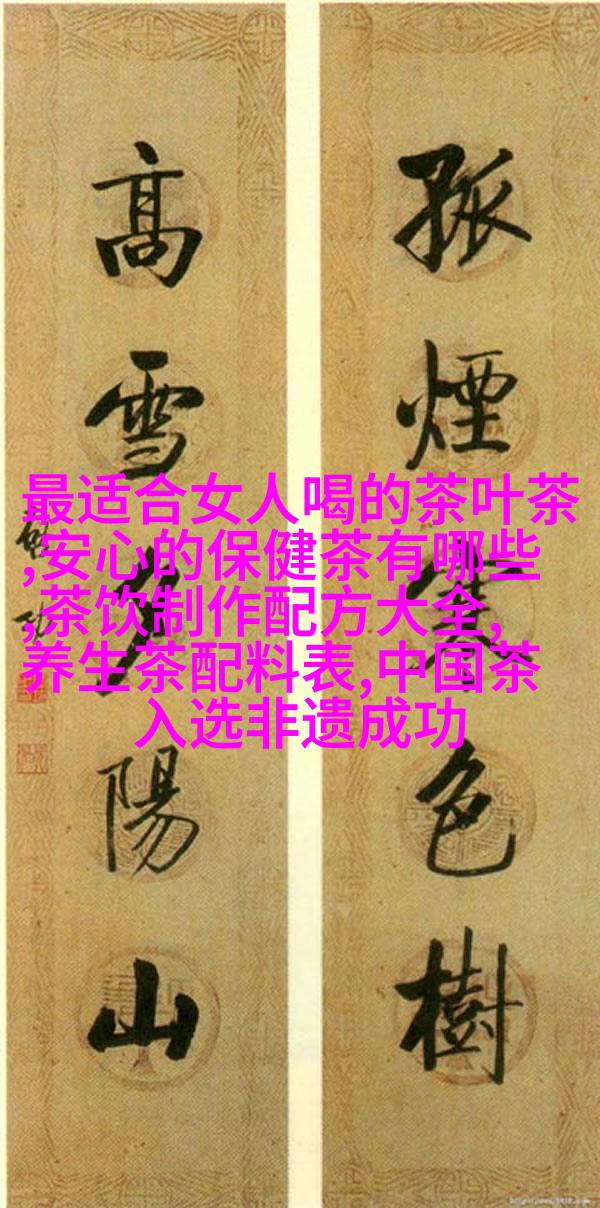 孤煙寒色樹
高雪夕陽山
最适合女人喝的茶叶茶
,安心的保健茶有哪些
,茶饮制作配方大全,
养生茶配料表,中国茶
入选非遗成功